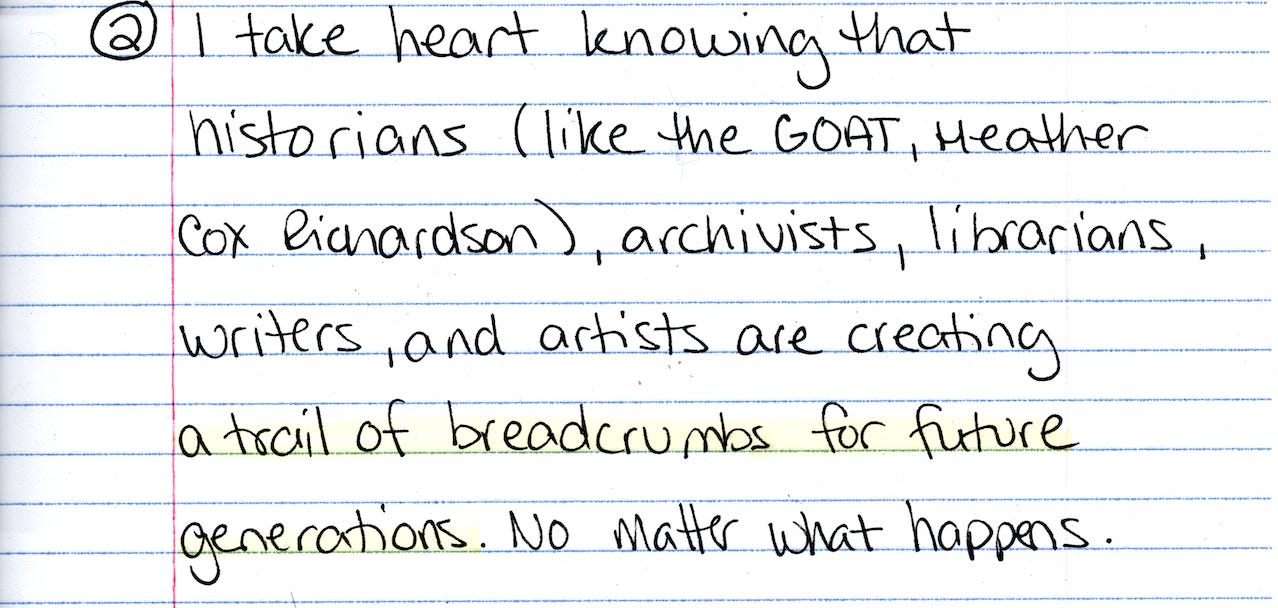 ② I take heart knowing that
historians (like the GOAT, Heather
Cox Richardson), archivists, librarians,
writers, and artists are creating
a trail of breadcrumbs for future
generations. No matter what happens.